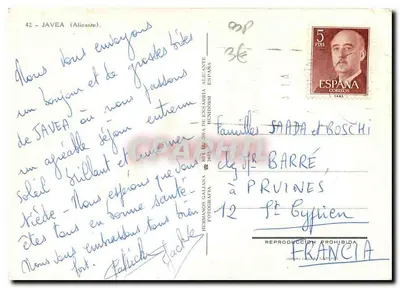 42 - JAVEA (Alicante).
Nous vous envoyons
un bonjour et de grosses bises
de JAVEA où nous passons
un agréable séjour entre un
soleil brillant et une mer
tiède - Nous espérons que vous
êtes tous en bonne santé -
Nous vous embrassons tous bien
fort.
Patrick
HERMANOS GALIANA
FOTOGRAFIA
BENIDORM
ESPAÑA
3€
5
PTAS
ESPAÑA
CORREOS
Familles SAADA et BOSCHI
chez Mr BARRÉ
à PRUINES
12 St Cyprien
REPRODUCCION PROHIBIDA
FRANCIA